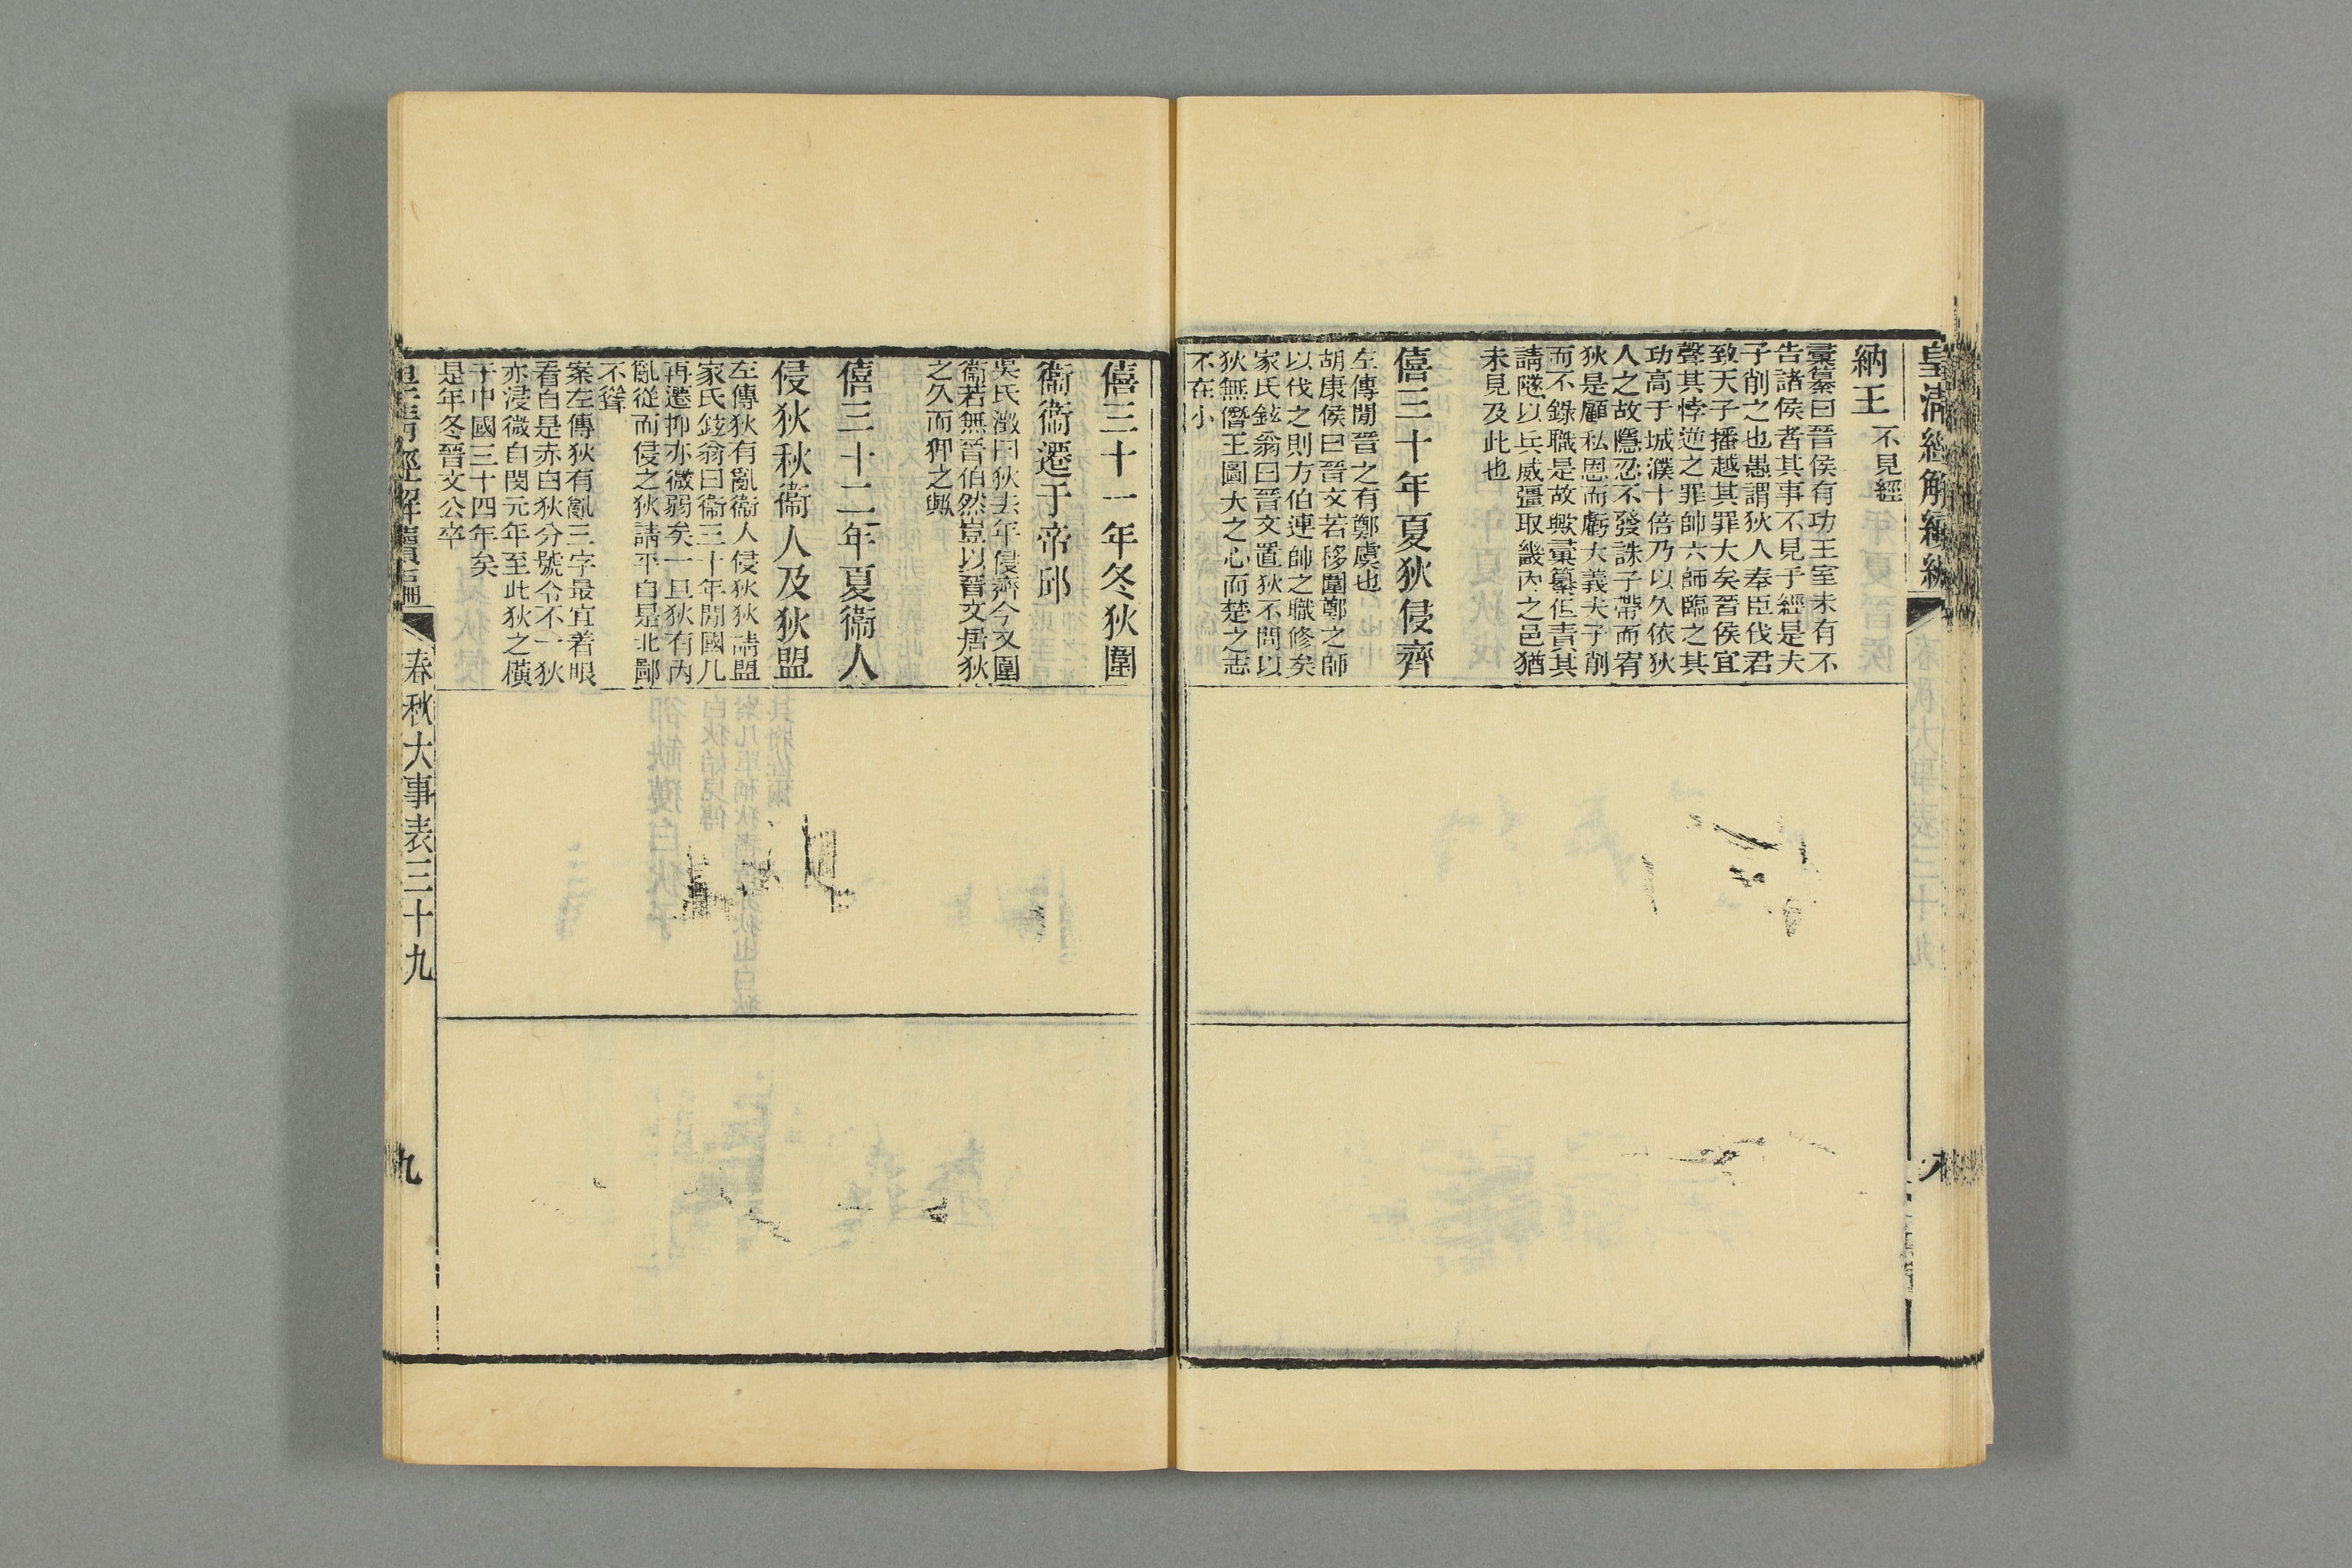 皇清經解續編
納王不見經
彙纂曰晉侯有功王室未有不
告諸侯者其事不見于經是夫
子削之也愚謂狄人奉臣伐君
致天子播越其罪大矣晉侯宜
聲其悖逆之罪帥六師臨之其
功高于城濮十倍乃以久依狄
人之故隱忍不發誅子帶而宥
狄是顧私恩而虧大義夫子削
而不錄職是故歟彙纂但責其
請隧以兵威彊取畿內之邑猶
未見及此也
僖三十年夏狄侵齊
左傳閒晉之有鄭虞也
胡康侯曰晉文若移圍鄭之師
以伐之則方伯連帥之職修矣
家氏鉉翁曰晉文置狄不問以
狄無僭王圖大之心而楚之志
不在小
僖三十一年冬狄圍
衞衞遷于帝邱
吳氏澂曰狄去年侵齊今又圍
衞若無晉伯然豈以晉文居狄
之久而狎之歟
僖三十二年夏衞人
侵狄秋衞人及狄盟
左傳狄有亂衞人侵狄狄請盟
家氏鉉翁曰衞三十年閒國几
再遷抑亦微弱矣一旦狄有內
亂從而侵之狄請平自是北鄙
不聳
案左傳狄有亂三字最宜着眼
看自是赤白狄分號令不一狄
亦浸微自閔元年至此狄之橫
于中國三十四年矣
是年冬晉文公卒
皇清經解續編
春秋大事表三十九
九